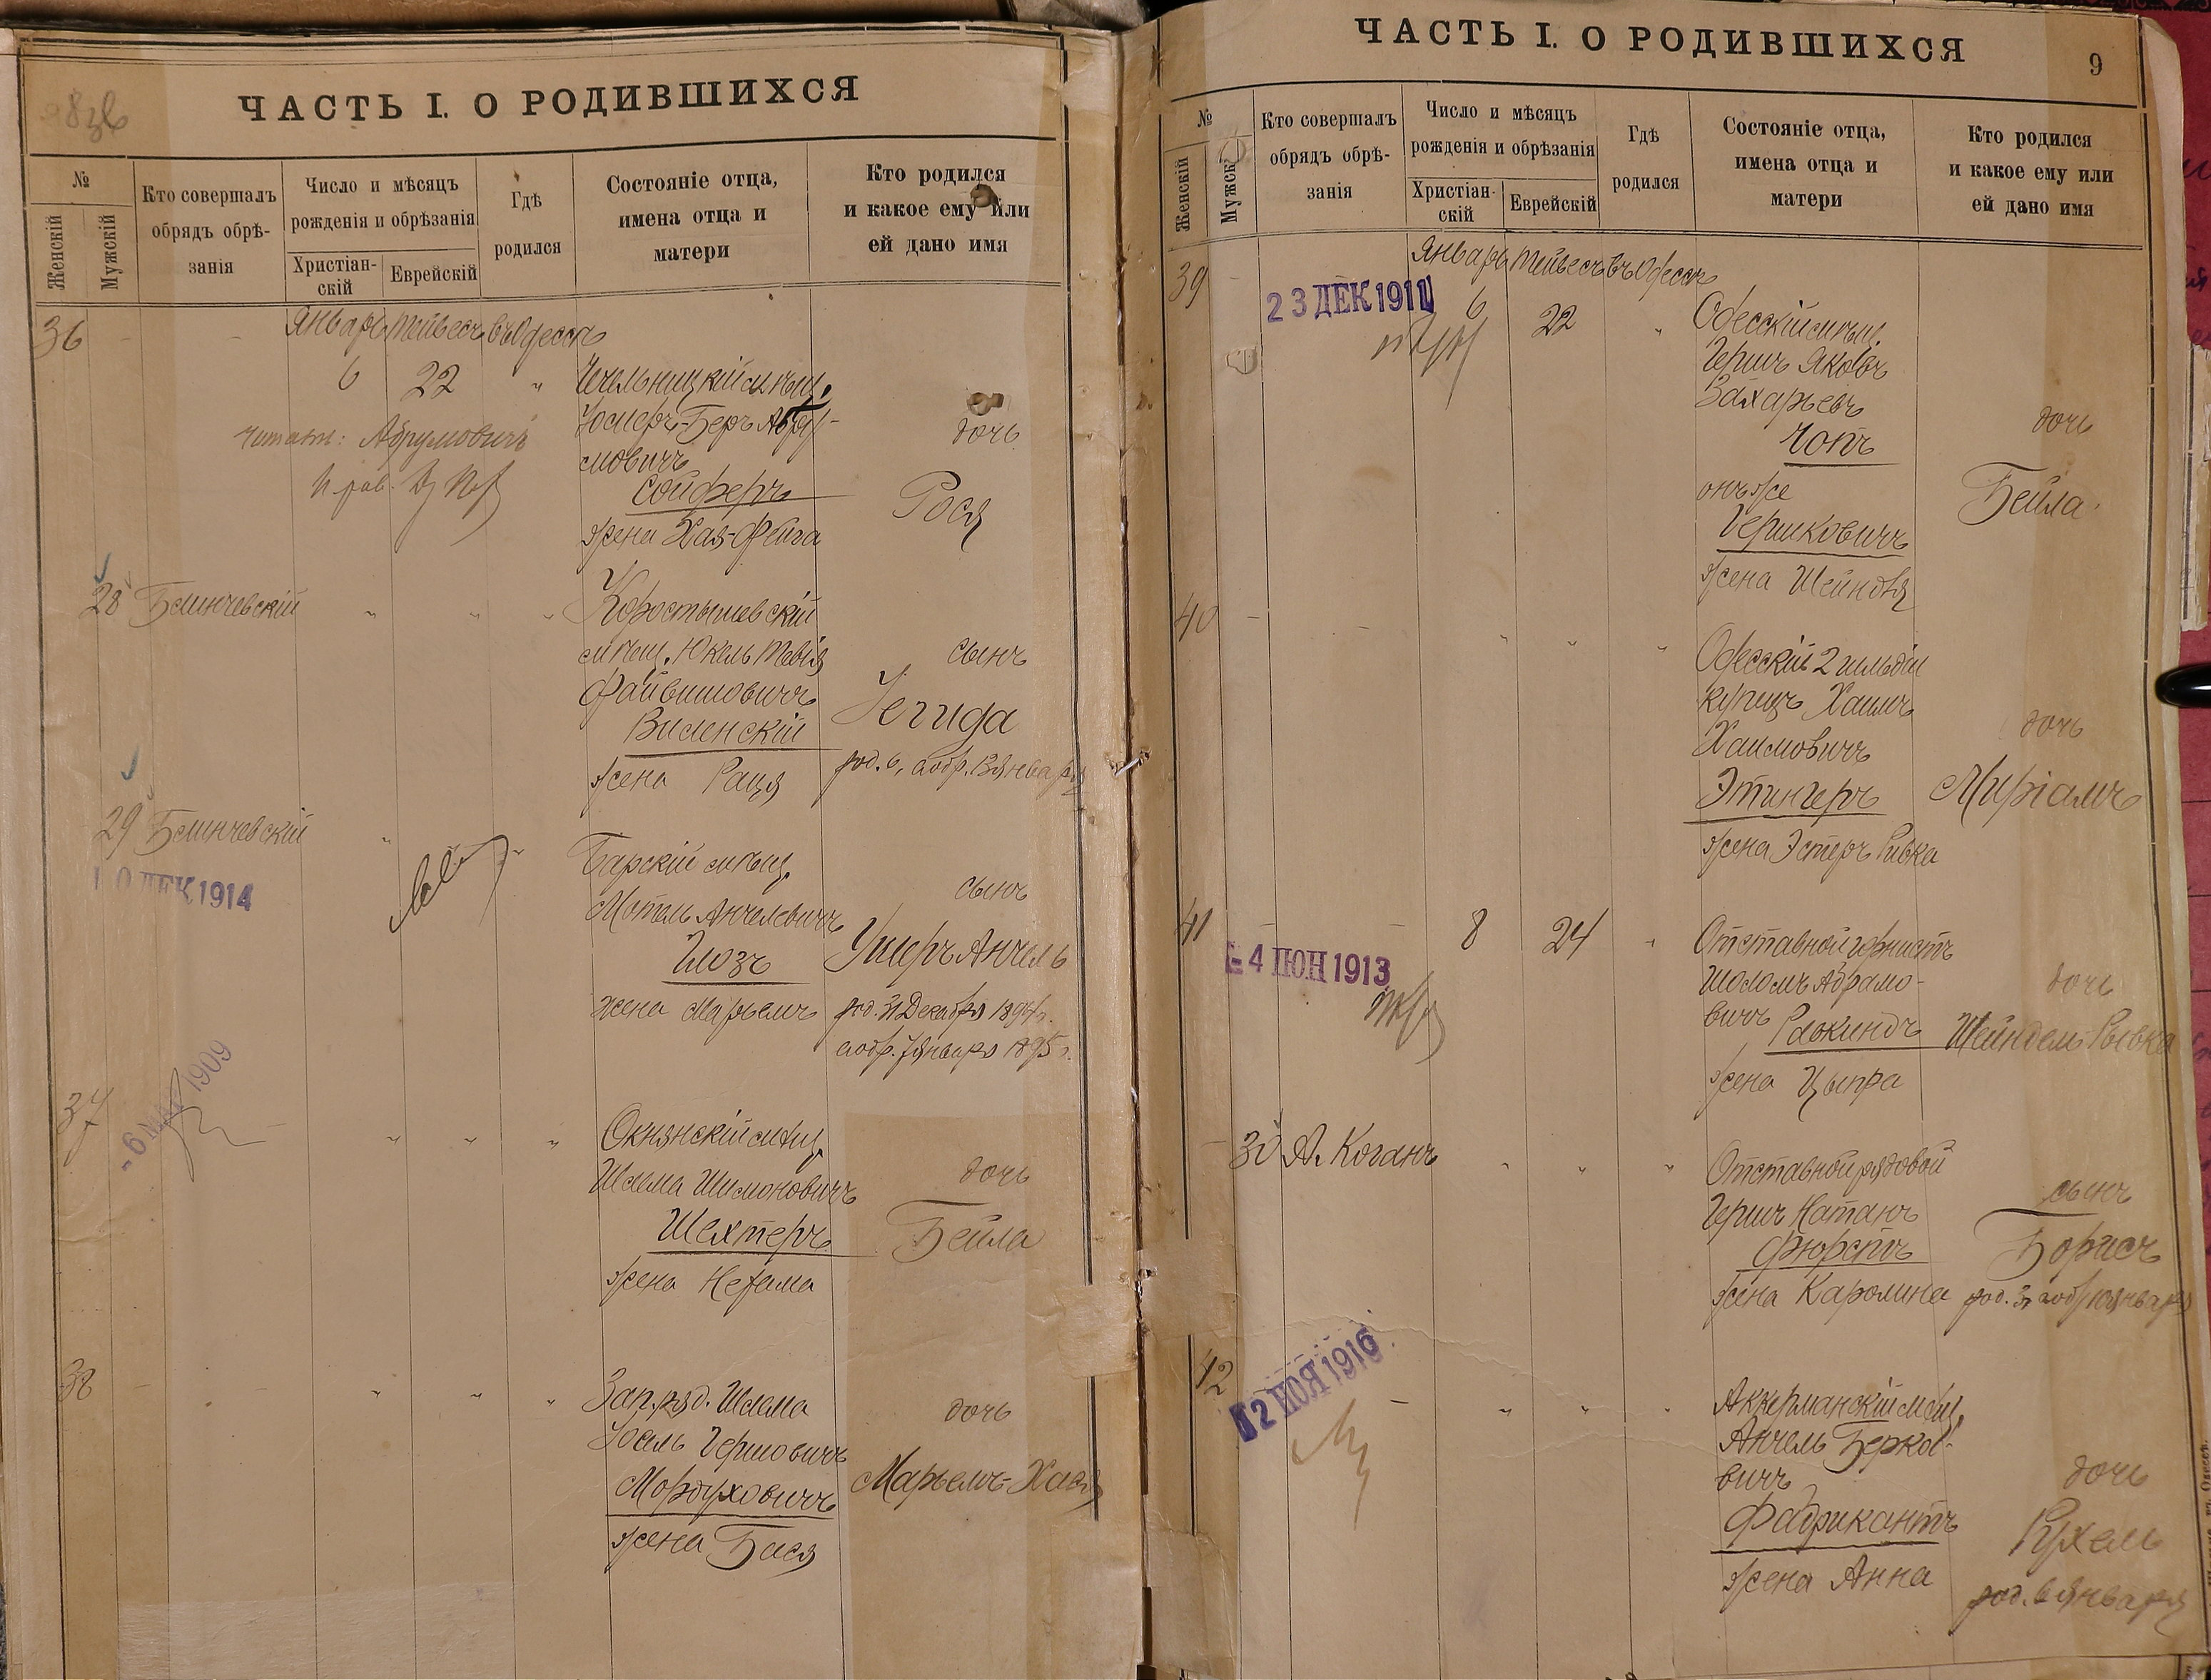 ЧАСТЬ I. О РОДИВШИХСЯ
№
Женскій
Мужскій
Кто совершалъ
обрядъ обрѣ-
занія
Число и мѣсяцъ
рожденія и обрѣзанія
Христіан-
скій
Еврейскій
Гдѣ
родился
Состояніе отца,
имена отца и
матери
Кто родился
и какое ему или
ей дано имя
36 Январь Тейвесъ въ Одессѣ
6 22 " Чечельницкій мѣщ.
Іосифъ-Беръ Абру-
мовичъ
Сойферъ
жена Хая-Фейга
дочь
Рося
читать: Абрумовичъ
28 Блинчевскій " " " Коростышевскій
мѣщ. Юкель Тевія
Файвишовичъ
Виленскій
жена Рация
сынъ
Іегуда
род. 6, а обр. 13 января
29 Блинчевскій " " Барскій мѣщ.
10 ДЕК 1914
Мотель Анчелевичъ
Глозъ
жена Марьемъ
сынъ
Ушеръ Анчель
род. 31 Декабря 1894 г.
а обр. 7 Января 1895 г.
37 " " " Окнянскій мѣщ.
1909
Шлема Шимоновичъ
Шехтеръ
жена Нехама
дочь
Бейла
38 " " " Зап. ряд. Шлема
Іосель Гершовичъ
Мордуховичъ
жена Бася
дочь
Марьемъ-Хася
ЧАСТЬ I. О РОДИВШИХСЯ
9
№
Женскій
Мужск
Кто совершалъ
обрядъ обрѣ-
занія
Число и мѣсяцъ
рожденія и обрѣзанія
Христіан-
скій
Еврейскій
Гдѣ
родился
Состояніе отца,
имена отца и
матери
Кто родился
и какое ему или
ей дано имя
39 Январь Тейвесъ въ Одессѣ
23 ДЕК 1911
6 22 " Одесскій мѣщ.
Гершъ Яковъ
Захарьевъ
Готъ
онъ же
Гершковичъ
жена Шейндля
дочь
Бейла
40 " " " Одесскій 2 гильдіи
купецъ Хаимъ
Хаимовичъ
Этингеръ
жена Эстеръ Ривка
дочь
Миріамъ
41 8 24 " Отставной горнистъ
4 ІЮН 1913
Шоломъ Абрамо-
вичъ Раскиндъ
жена Цыпра
дочь
Шейндель Рывка
30 А. Коганъ " " " Отставной рядовой
Гершъ Натанъ
Фюрстъ
жена Каролина
сынъ
Борисъ
род. 3, а обр. 10 января
42 " " " Аккерманскій мѣщ.
12 НОЯ 1916
Анчель Берко-
вичъ
Фабрикантъ
жена Анна
дочь
Рухель
род. 6 Января